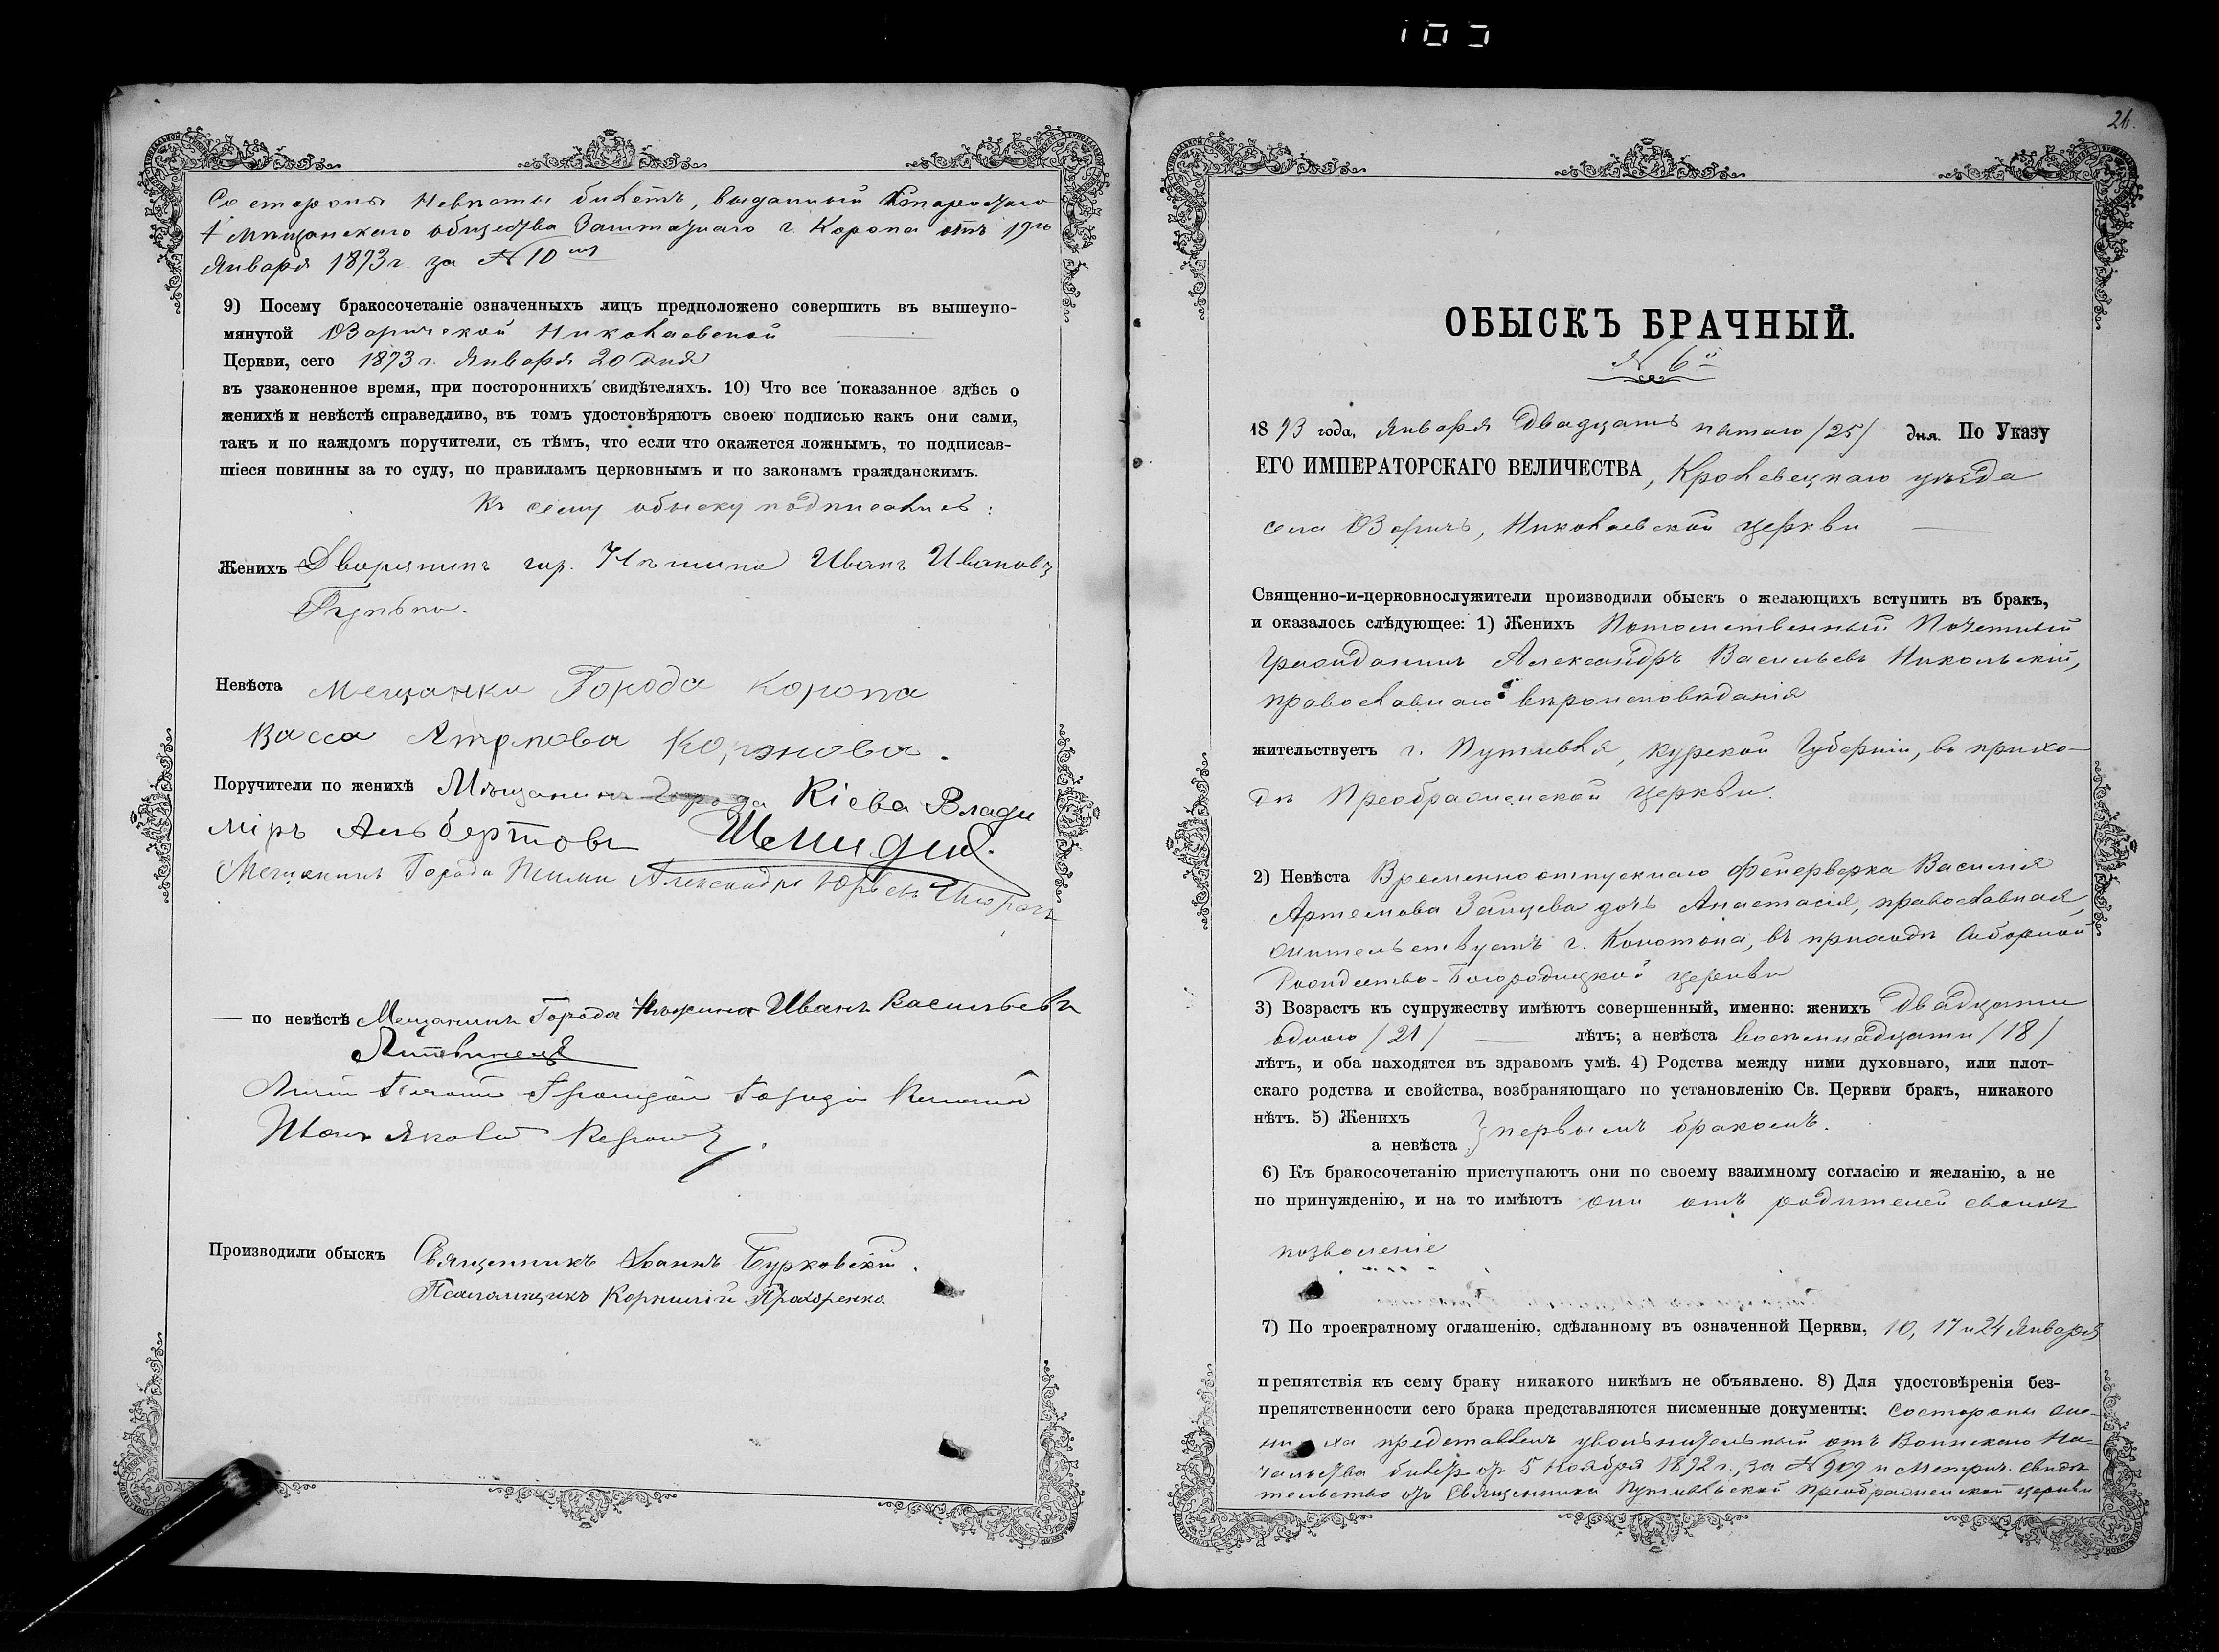 Со стороны Невесты билетъ, выданный Старостою
Мѣщанскаго общества Заштатнаго г. Коропа отъ 19го
Января 1873 г. за № 10
9) Посему бракосочетаніе означенныхъ лицъ предположено совершить въ вышеупо-
мянутой Озаричской Николаевской
Церкви, сего 1873 г. Января 20 дня
въ узаконенное время, при постороннихъ свидѣтеляхъ. 10) Что все показанное здѣсь о
женихѣ и невѣстѣ справедливо, въ томъ удостовѣряютъ своею подписью какъ они сами,
такъ и по каждомъ поручители, съ тѣмъ, что если что окажется ложнымъ, то подписав-
шіеся повинны за то суду, по правиламъ церковнымъ и по законамъ гражданскимъ.
Къ сему обыску подписались:
Женихъ Дворянинъ гор. Нѣжина Иванъ Ивановъ
Невѣста Мещанка Города Коропа
Васса
Поручители по женихѣ Мѣщанинъ Города Кіева Влади
міръ Альбертовъ
Мещанинъ Города Александръ Юрьевъ
— по невѣстѣ Мещанинъ Города Нѣжина Иванъ Васильевъ
Литвинецъ
Города
Иванъ Яковлевъ
Производили обыскъ Священникъ Іоаннъ Бурковскій.
Псаломщикъ Корнилій Прахоренко.
103
26.
ОБЫСКЪ БРАЧНЫЙ.
№ 6й
1893 года, Января Двадцать пятаго /25/ дня. По Указу
ЕГО ИМПЕРАТОРСКАГО ВЕЛИЧЕСТВА, Кролевецкаго уѣзда
села Озаричъ, Николаевской церкви
Священно-и-церковнослужители производили обыскъ о желающихъ вступить въ бракъ,
и оказалось слѣдующее: 1) Женихъ Потомственный Почетный
Гражданинъ Александръ Васильевъ Никольскій,
православнаго вѣроисповѣданія
жительствуетъ г. Путивля, Курской Губерніи, въ прихо-
дѣ Преображенской церкви
2) Невѣста Временноотпускнаго Фейерверка Василія
Артемова Зайцева дочь Анастасія, православная,
жительствуетъ г. Конотопа, въ приходѣ Соборной
Рождество-Богородицкой церкви
3) Возрастъ къ супружеству имѣютъ совершенный, именно: женихъ Двадцати
одного /21/ лѣтъ; а невѣста восемнадцати /18/
лѣтъ, и оба находятся въ здравомъ умѣ. 4) Родства между ними духовнаго, или плот-
скаго родства и свойства, возбраняющаго по установленію Св. Церкви бракъ, никакого
нѣтъ. 5) Женихъ
а невѣста } первымъ бракомъ.
6) Къ бракосочетанію приступаютъ они по своему взаимному согласію и желанію, а не
по принужденію, и на то имѣютъ они отъ родителей своихъ
позволеніе
7) По троекратному оглашенію, сдѣланному въ означенной Церкви, 10, 17 и 24 Января
препятствія къ сему браку никакого никѣмъ не объявлено. 8) Для удостовѣренія без-
препятственности сего брака представляются писменные документы: Со стороны же-
ниха представленъ увольнительный отъ Воинскаго На-
чальства билетъ отъ 5 Ноября 1892 г., за № 909 и Метрич. свидѣ
тельство отъ Священника Путивльской Преображенской церкви